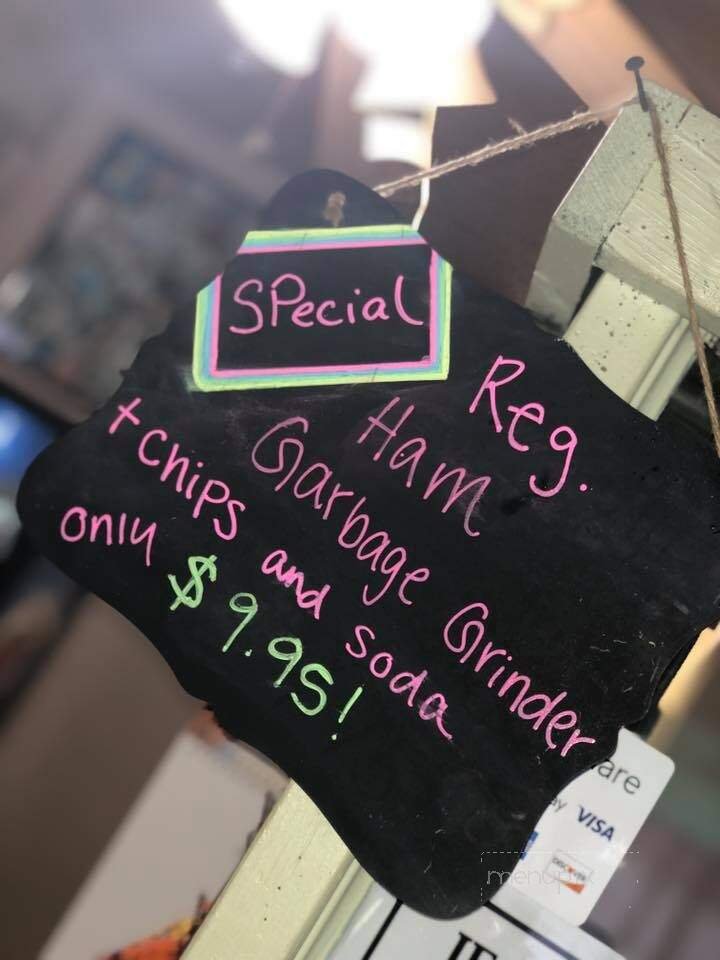 SPecial
Reg.
Ham
Garbage Grinder
+ chips and soda
only $9.95!
are
ay VISA
DISCOVER
menupix
IF